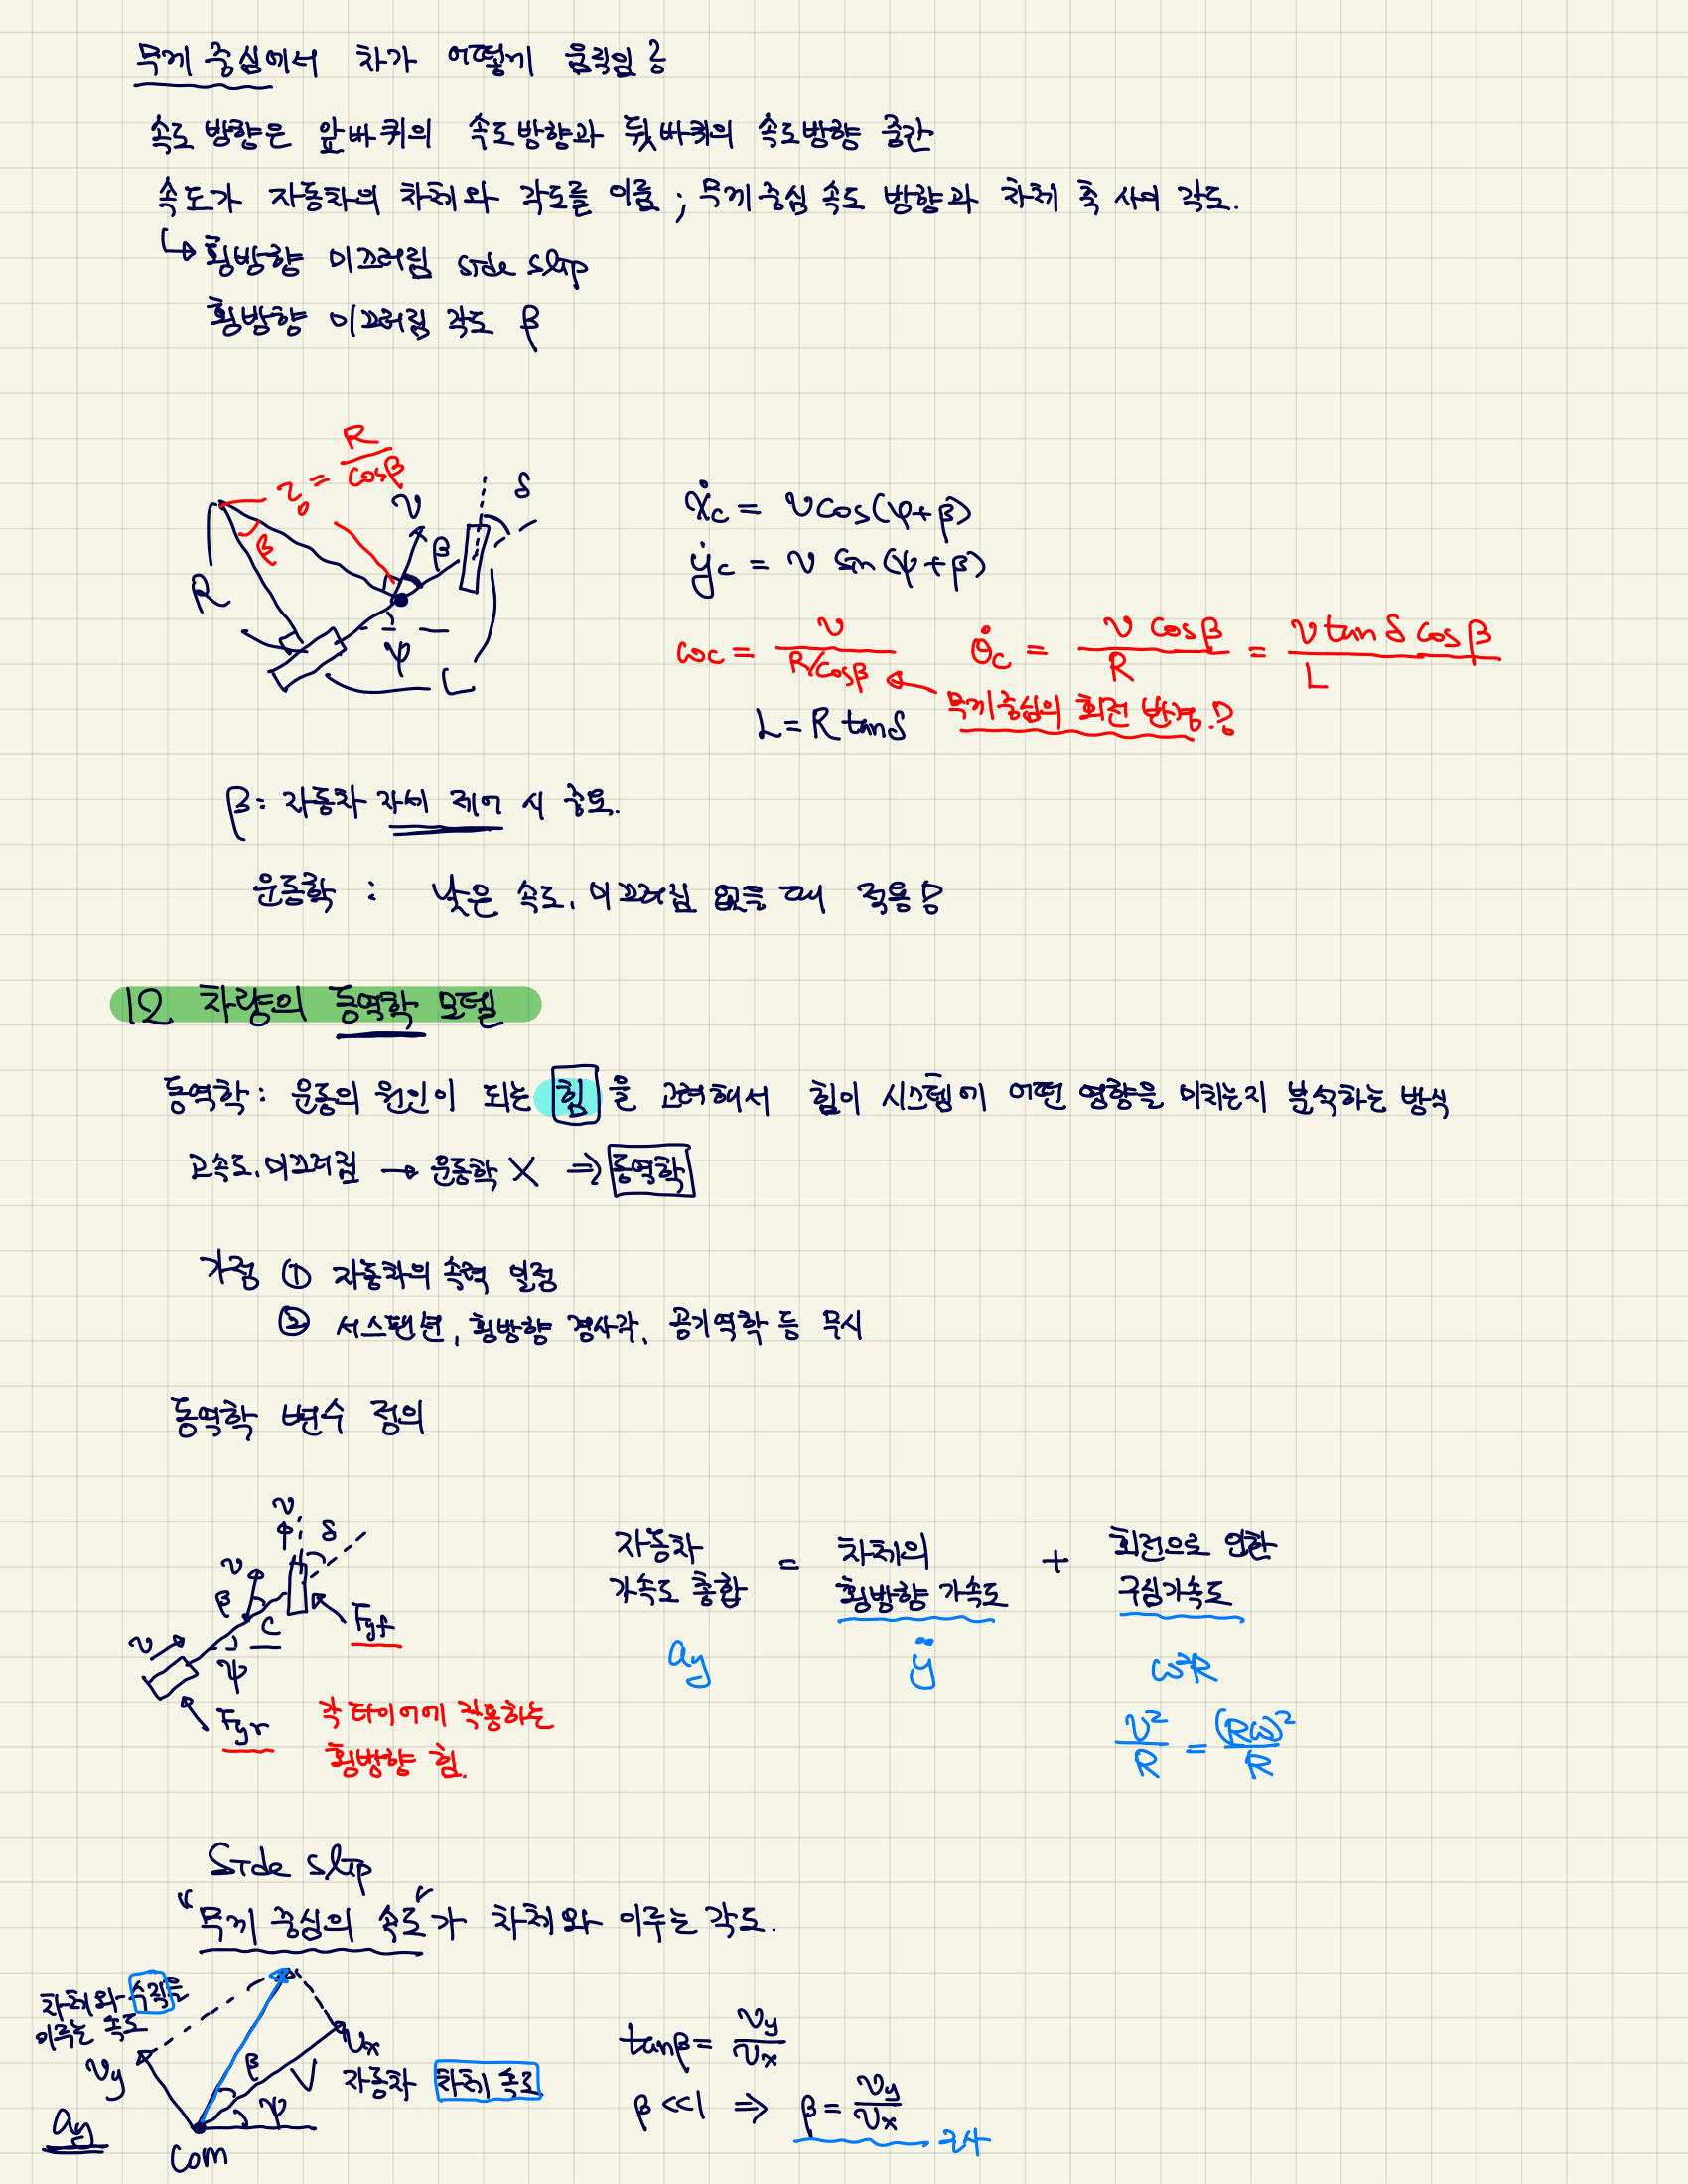 무게 중심에서 차가 어떻게 움직임?
속도 방향은 앞바퀴의 속도방향과 뒷바퀴의 속도방향 중간
속도가 자동차의 차체와 각도를 이룸 ; 무게중심 속도 방향과 차체 축 사이 각도.
↳ 횡방향 미끄러짐 side slip
횡방향 미끄러짐 각도 β
r₀ = R/cosβ
v
δ
β
β
R
ψ
L
ẋc = v cos(ψ+β)
ẏc = v sin(ψ+β)
ωc = v/(R/cosβ)
θ̇c = v cosβ/R = v tanδ cosβ/L
무게중심의 회전 반경.!
L = R tanδ
β: 자동차 자세 제어 시 중요.
운동학 : 낮은 속도, 미끄러짐 없을 때 적용!
12 차량의 동역학 모델
동역학: 운동의 원인이 되는 힘을 고려해서 힘이 시스템에 어떤 영향을 미치는지 분석하는 방식
고속도, 미끄러짐 → 운동학 X ⇒ 동역학
가정 ① 자동차의 속력 일정
② 서스펜션, 횡방향 경사각, 공기역학 등 무시
동역학 변수 정의
v
δ
v
β
C
Fyf
v
ψ
Fyr
각 타이어에 작용하는
횡방향 힘.
자동차 가속도 총합 = 차체의 횡방향 가속도 + 회전으로 인한 구심가속도
ay
ÿ
ω²R
v²/R = (Rω)²/R
Side slip
"무게 중심의 속도"가 차체와 이루는 각도.
차체와 수직을
이루는 속도
vy
vx
β
V
자동차 차체 속도
ψ
ay
Com
tanβ = vy/vx
β<<1 ⇒ β = vy/vx
근사